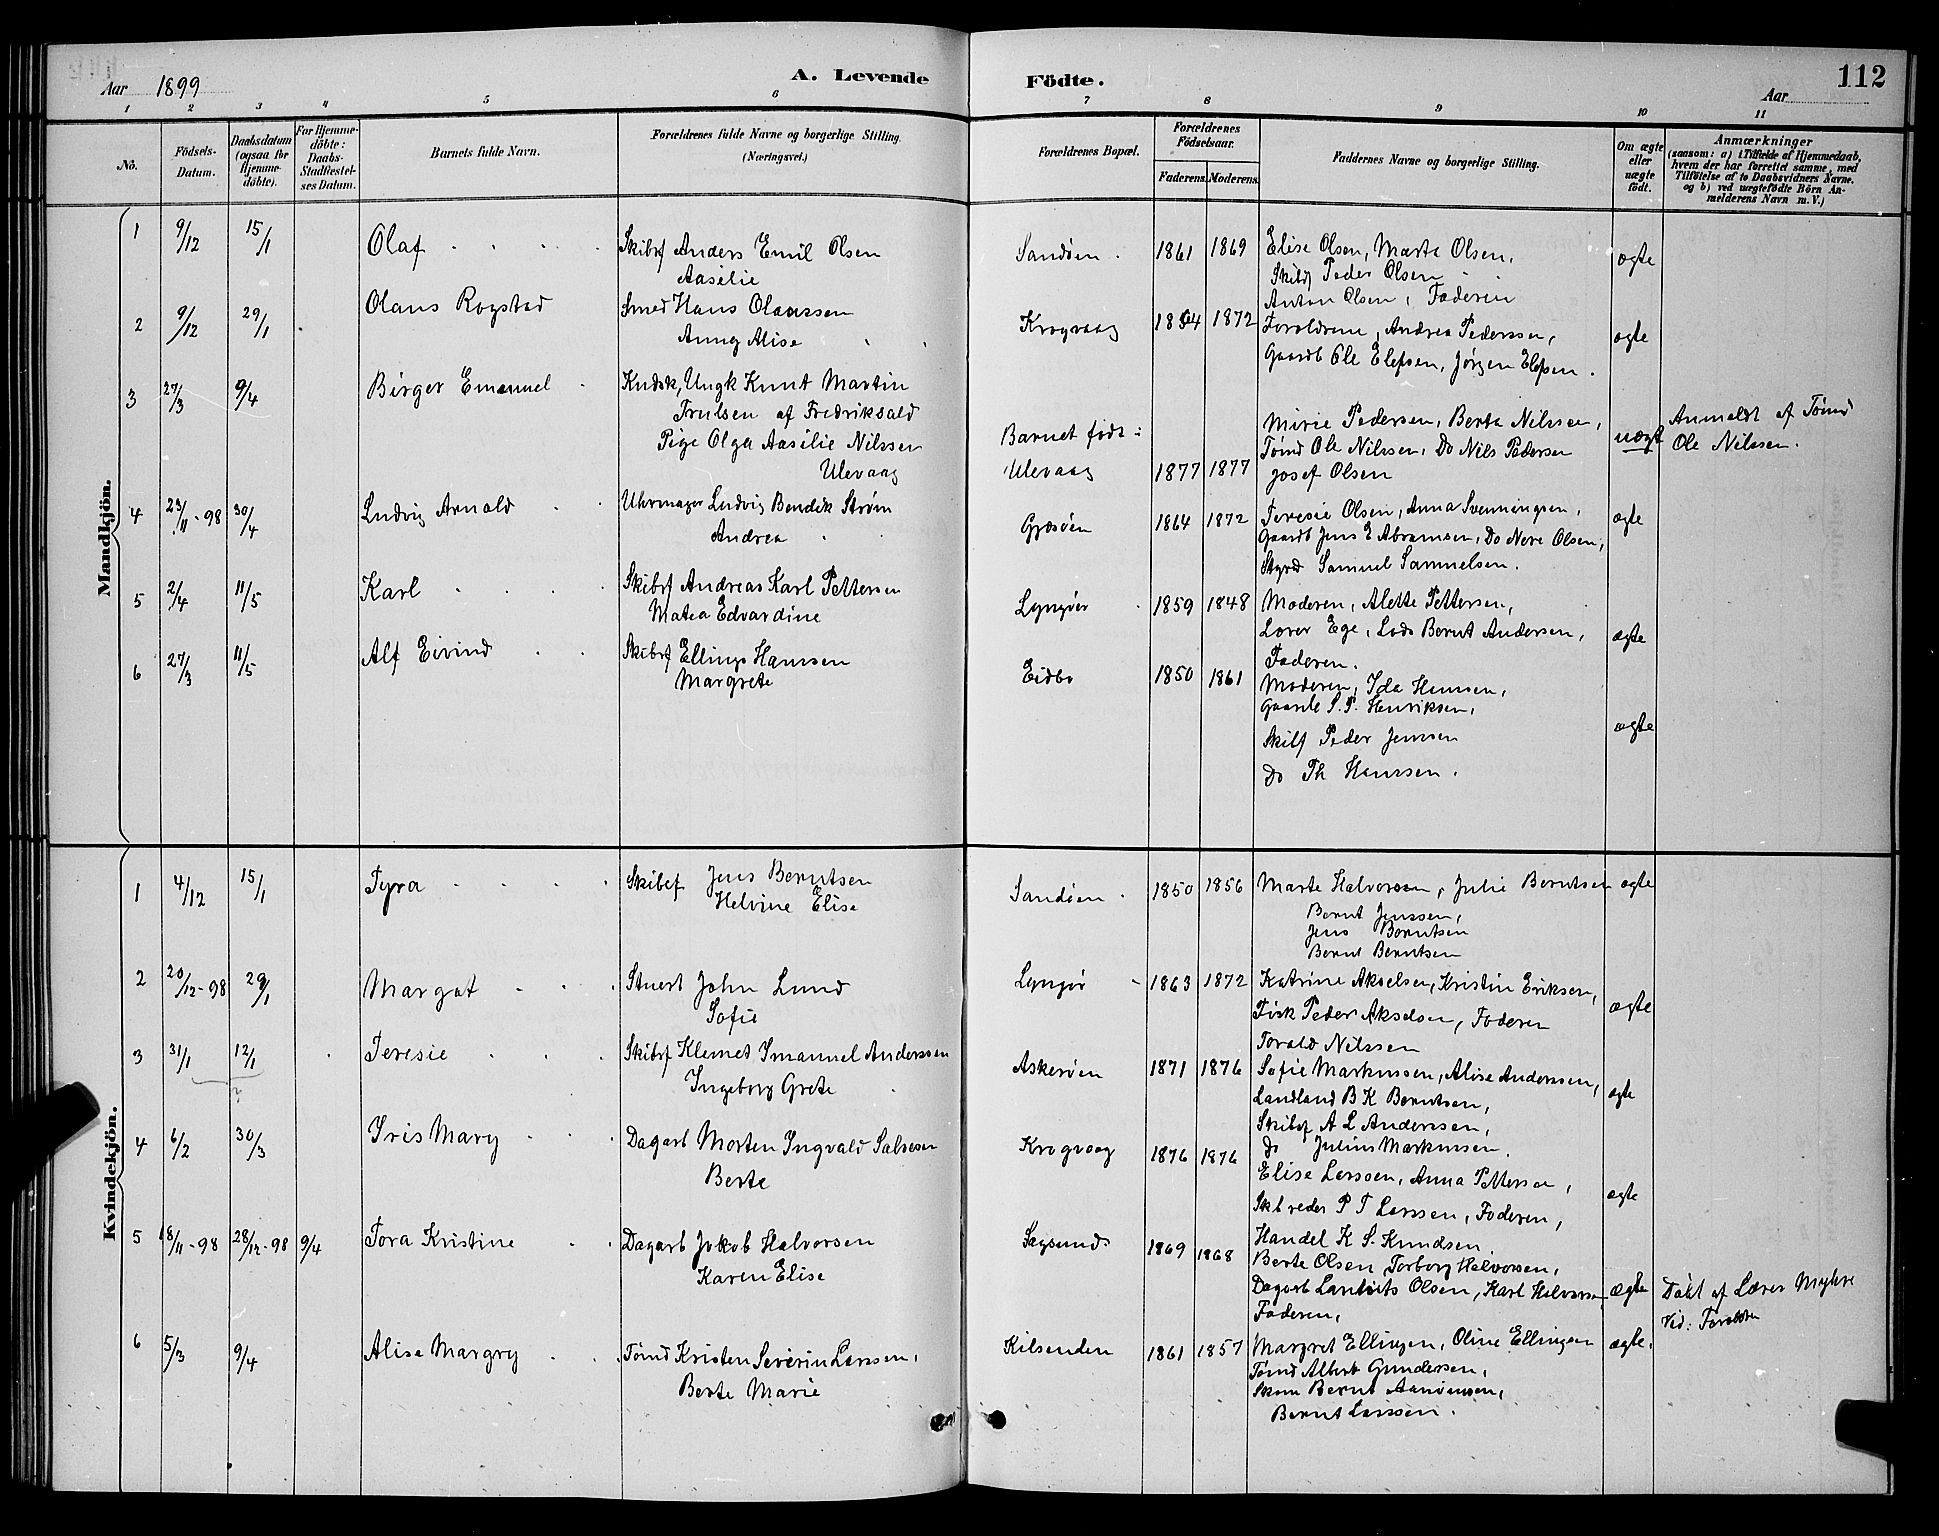 Aar 1899
A. Levende
Födte.
Aar
112
1 2 3 4 5 6 7 8 9 10 11
No.
Födsels-
Datum.
Daabsdatum
(ogsaa for
Hjemme-
döbte).
For Hjemme-
döbte:
Daabs-
Stadfæstel-
ses Datum.
Barnets fulde Navn.
Forældrenes fulde Navne og borgerlige Stilling.
(Næringsvei.)
Forældrenes Bopæl.
Forældrenes
Födselsaar.
Faderens. Moderens.
Faddernes Navne og borgerlige Stilling.
Om ægte
eller
uægte
født.
Anmærkninger
(saasom: a) i Tilfælde af Hjemmedaab,
hvem der har forrettet samme, med
Tilföielse af to Daabsvidners Navne.
og b) ved uægtefödte Börn An-
melderens Navn m. V.)
Mandkjön.
1 9/12 15/1 Olaf Skibsf Anders Emil Olsen
Aasilie
Sandöen 1861 1869 Elise Olsen, Marte Olsen,
Skibsf Peder Olsen
Anton Olsen, Faderen
ægte
2 9/12 29/1 Olaus Rogstad Smed Hans Olaussen
Anna Alise
Krogvaag 1872 Forældrene, Andrea Pedersen,
Gaardb Ole Elefsen, Jørgen Elefsen.
ægte
3 27/3 9/4 Birger Emanuel Kudsk, Ungk Knut Martin
Trulsen af Fredriksald
Pige Olga Aasilie Nilssen
Ulevaag
Barnet födt i
Ulevaag 1877 1877
Mirie Pedersen, Berta Nilssen,
Tømd Ole Nilssen, Do Nils Pedersen
Josef Olsen
uægt
Anmeldt af Tømd
Ole Nilssen.
4 23/11-98 30/4 Ludvig Arnold Uhrmager Ludvig Bendik Strøm
Andrea
Gjæsöen 1864 1872 Teresie Olsen, Anna Svenningsen,
Gaardb Jens E Abramsen, Do Nere Olsen,
Styrd Samuel Samuelsen.
ægte
5 2/4 11/5 Karl Skibsf Andreas Karl Pettersen
Matea Edvardine
Lyngör 1859 1848 Moderen, Alette Pettersen,
Lærer Ege, Lods Bernt Andersen,
Faderen.
ægte
6 27/3 11/5 Alf Eivind Skibsf Elling Hanssen
Margrete
Eidbo 1850 1861 Moderen, Ida Hanssen,
Gaardb S. P. Henriksen,
Skibf Peder Jenssen
Do Th Hanssen.
ægte
Kvindekjön.
1 4/12 15/1 Tyra Skibsf Jens Berntsen
Helvine Elise
Sandöen 1850 1856 Marte Halvorsen, Julie Berntsen
Bernt Jenssen,
Jens Berntsen
Bernt Berntsen
ægte
2 20/12-98 29/1 Margot Stuert John Lund
Sofie
Lyngör 1863 1872 Katrine Akselsen, Kristin Eriksen,
Fisk Peder Akselsen, Faderen
Torald Nilssen
ægte
3 31/1 12/1 Teresie Skibsf Klemet Imanuel Anderssen
Ingeborg Grete
Askeröen 1871 1876 Sofie Markussen, Alise Anderssen,
Landhand B K Berntsen,
Skibsf A L Anderssen,
Do Julius Markussen.
ægte
4 6/2 30/3 Iris Mary Dagarb Morten Ingvald Salvesen
Berte
Krogvaag 1876 1876 Elise Larssen, Anna Pettersen,
Skibreder P T Larssen, Faderen,
Handel K S. Knudsen
ægte
5 18/11-98 28/12-98 9/4 Tora Kristine Dagarb Jakob Halvorsen
Karen Elise
Sagsund 1869 1868 Berte Olsen, Torborg Halvorsen,
Dagarb Olsen, Karl Halvorsen,
Faderen,
ægte
Döbt af Lærer Myhre
Vid: Forældre
6 5/3 9/4 Alise Margry Tømd Kristen Severin Larssen,
Berte Marie
Kilsenden 1861 1857 Margret Ellingsen, Oline Ellingsen
Tømd Albert Gundersen,
Skom Bernt
Bernt Larssen.
ægte.